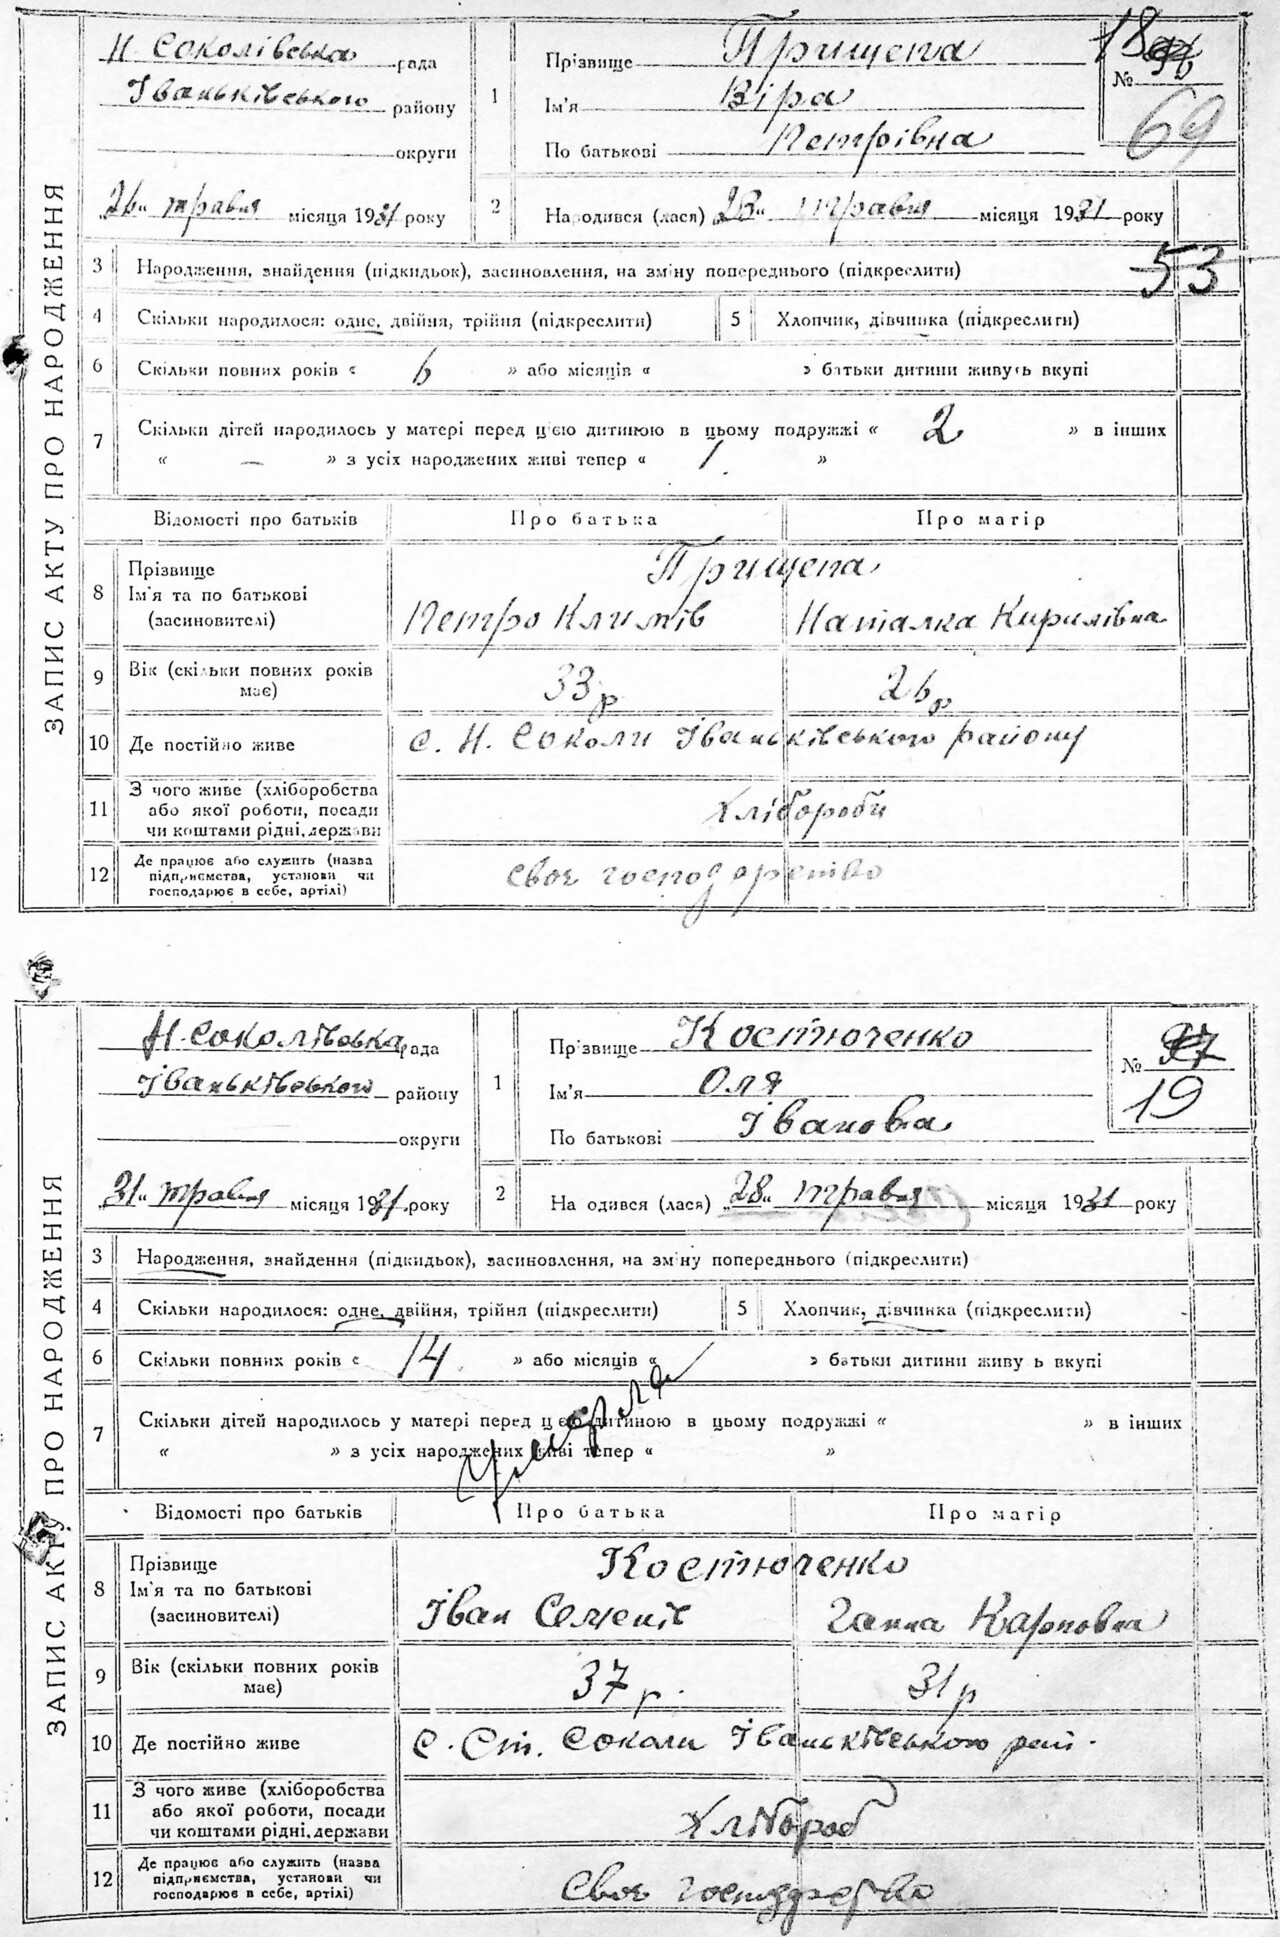 ЗАПИС АКТУ ПРО НАРОДЖЕННЯ
Н. Соколівська рада
Іваньківського району
округи
"26" травня місяця 1931 року
1
Прізвище Прищепа
Ім'я Віра
По батькові Петрівна
№ 18
69
2
Народився (лася) 23" травня місяця 1931 року
3 Народження, знайдення (підкидьок), засиновлення, на зміну попереднього (підкреслити)
53
4 Скільки народилося: одне, двійня, трійня (підкреслити) 5 Хлопчик, дівчинка (підкреслити)
6 Скільки повних років « 6 » або місяців « » батьки дитини живуть вкупі
7 Скільки дітей народилось у матері перед цією дитиною в цьому подружжі « 2 » в інших
« — » з усіх народжених живі тепер « 1 »
Відомості про батьків Про батька Про матір
8 Прізвище Прищепа
Ім'я та по батькові Петро Климів Наталка Кирилівна
(засиновителі)
9 Вік (скільки повних років має) 33 р 26 р
10 Де постійно живе с. Н. Соколи Іваньківського району
11 З чого живе (хліборобства
або якої роботи, посади Хлібороби
чи коштами рідні, держави
12 Де працює або служить (назва
підприємства, установи чи своє господарство
господарює в себе, артілі)
ЗАПИС АКТУ ПРО НАРОДЖЕННЯ
Н. Соколівска рада
Іваньківського району
округи
31" травня місяця 1931 року
1
Прізвище Костюченко
Ім'я Оля
По батькові Івановна
№ 97
19
2
На одився (лася) „28" травня місяця 1931 року
3 Народження, знайдення (підкидьок), засиновлення, на зміну попереднього (підкреслити)
4 Скільки народилося: одне, двійня, трійня (підкреслити) 5 Хлопчик, дівчинка (підкреслити)
6 Скільки повних років « 14 » або місяців « » батьки дитини живу ь вкупі
7 Скільки дітей народилось у матері перед цією дитиною в цьому подружжі « » в інших
« » з усіх народжених живі тепер « »
Умерла
Відомості про батьків Про батька Про матір
8 Прізвище Костюченко
Ім'я та по батькові Іван Семенів Ганна Карповна
(засиновителі)
9 Вік (скільки повних років має) 37 р. 31 р
10 Де постійно живе с. Ст. Соколи Іваньківського рай.
11 З чого живе (хліборобства
або якої роботи, посади Хлібороб
чи коштами рідні, держави
12 Де працює або служить (назва
підприємства, установи чи Своє
господарює в себе, артілі)